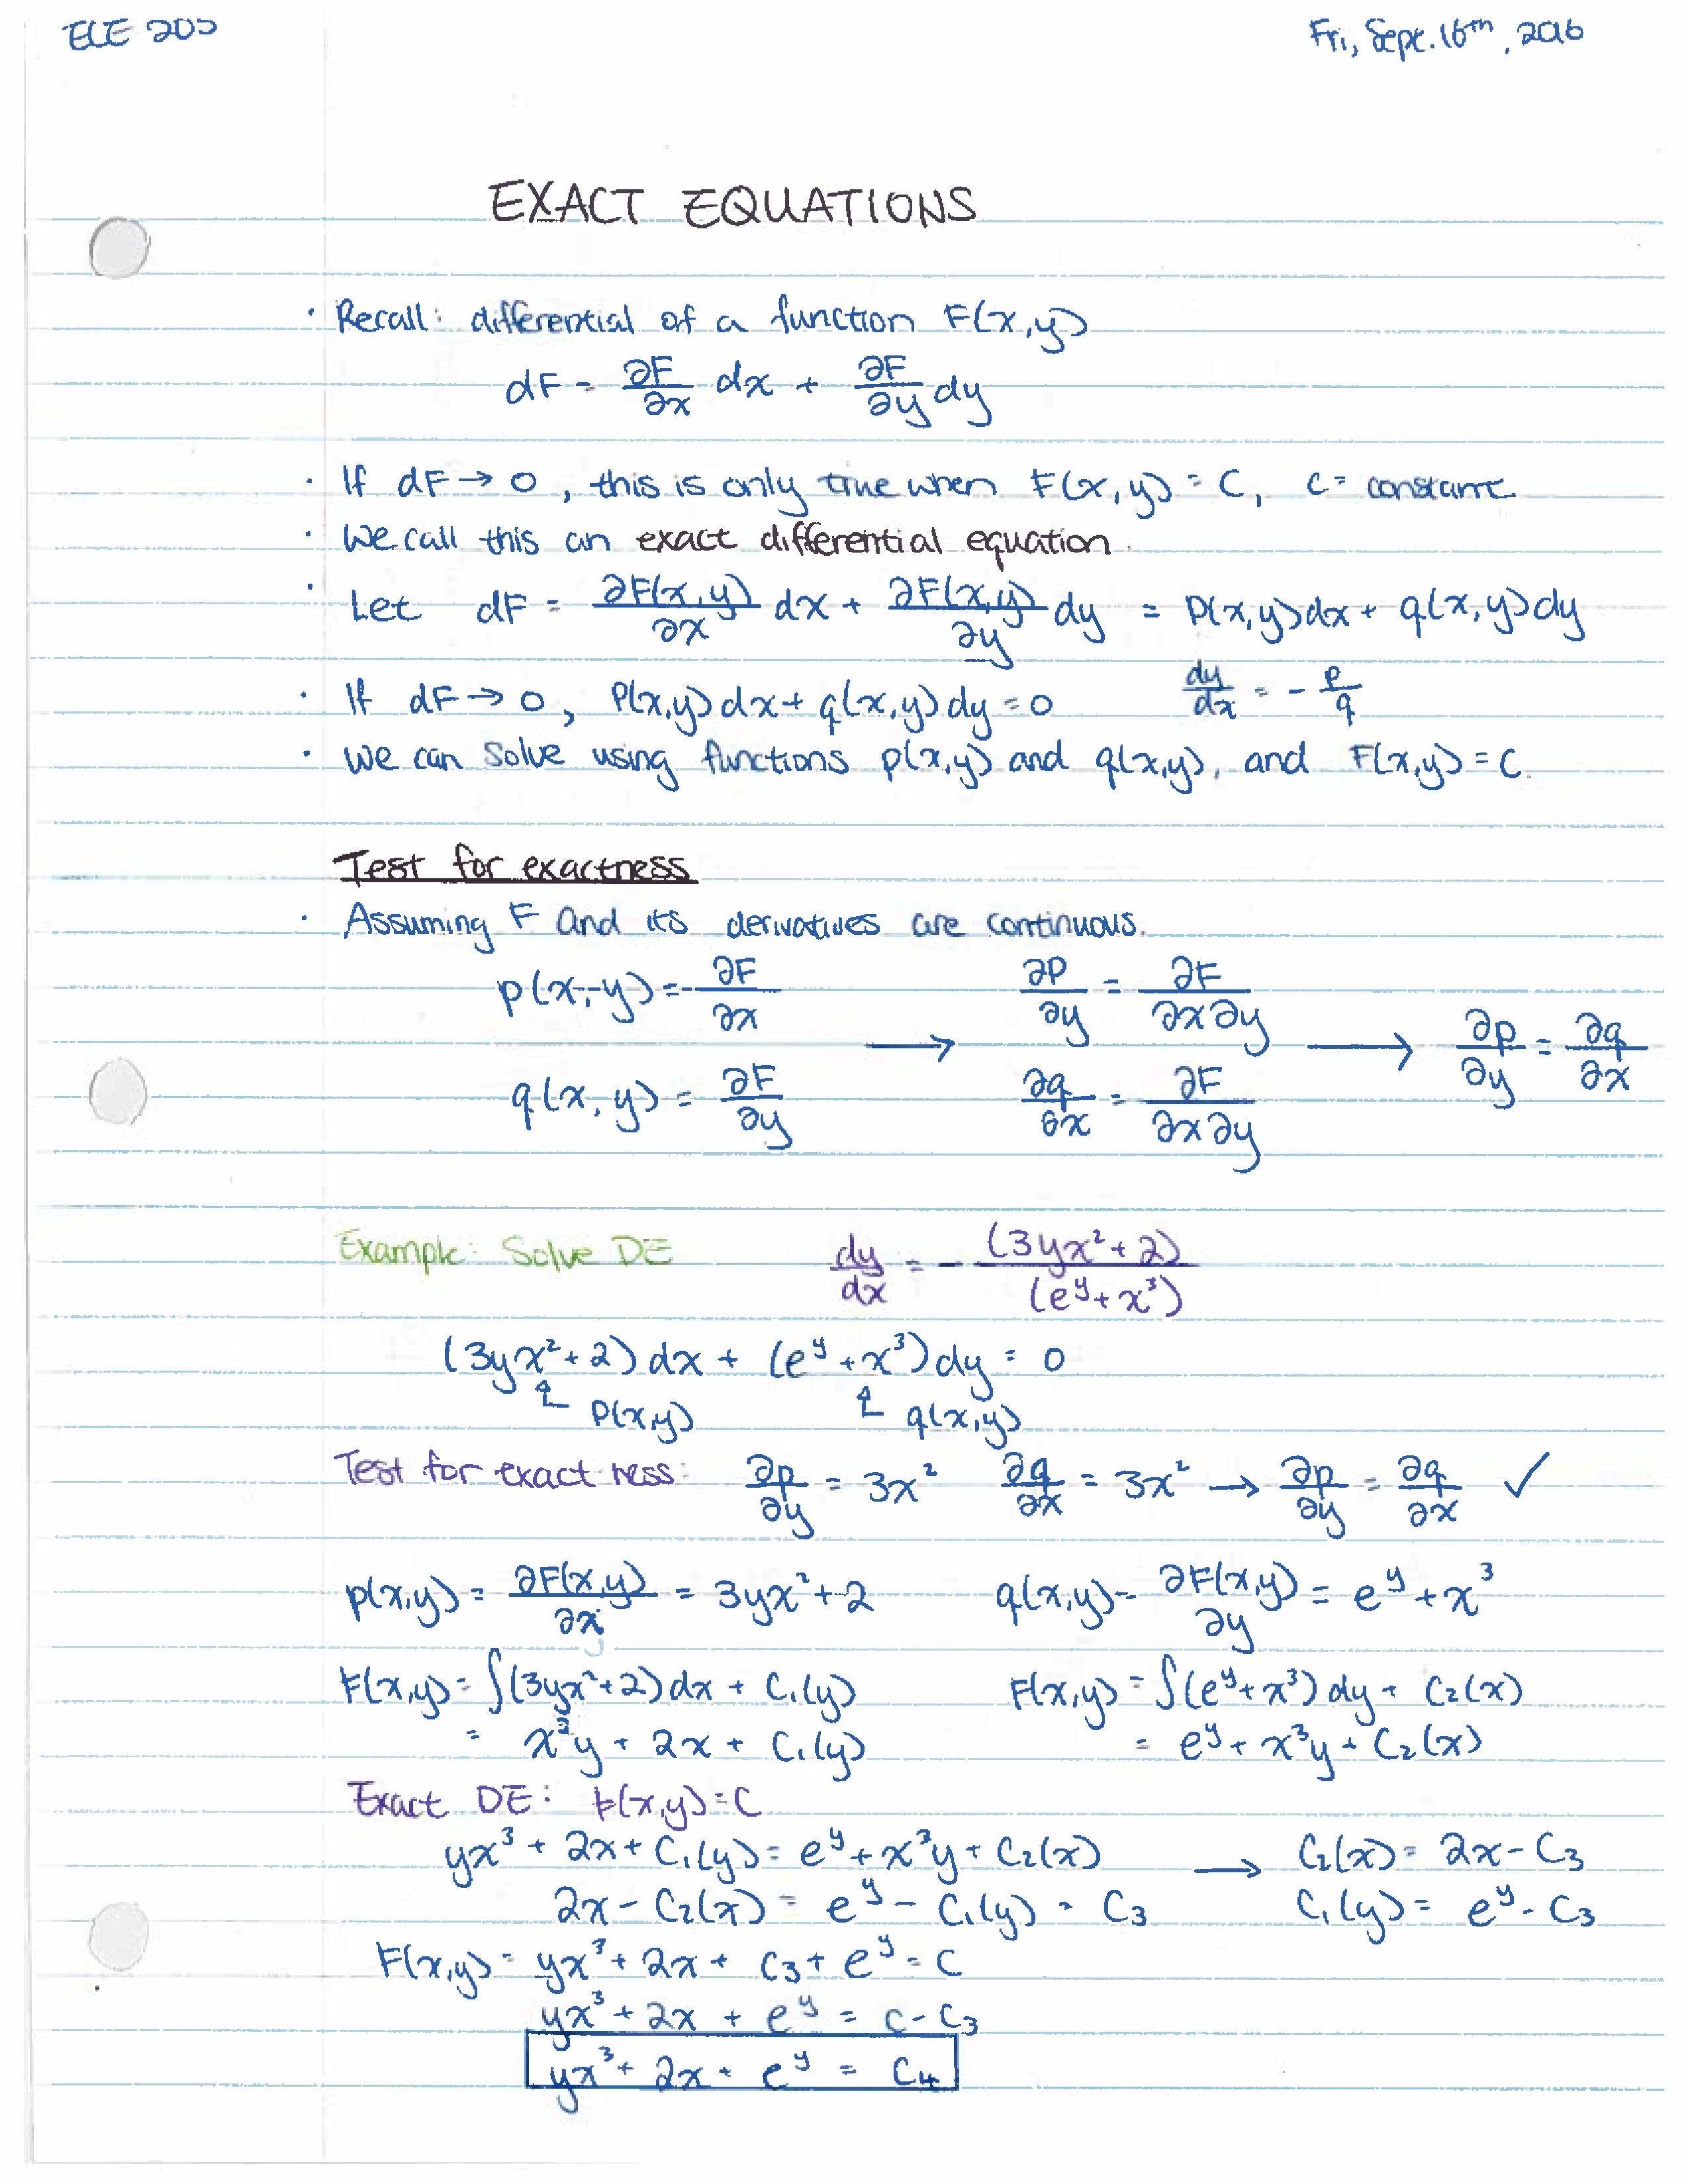 ELE 205
Fri, Sept. 16th, 2016
EXACT EQUATIONS
· Recall: differential of a function F(x,y)
dF = ∂F/∂x dx + ∂F/∂y dy
· If dF → 0, this is only true when F(x,y) = C, C = constant
· We call this an exact differential equation.
· Let dF = ∂F(x,y)/∂x dx + ∂F(x,y)/∂y dy = p(x,y)dx + q(x,y)dy
· If dF → 0, p(x,y)dx + q(x,y)dy = 0 dy/dx = - p/q
· We can solve using functions p(x,y) and q(x,y), and F(x,y) = C.
Test for exactness
· Assuming F and its derivatives are continuous.
p(x,y) = ∂F/∂x ∂p/∂y = ∂F/∂x∂y
→ → ∂p/∂y = ∂q/∂x
q(x,y) = ∂F/∂y ∂q/∂x = ∂F/∂x∂y
Example: Solve DE dy/dx = - (3yx²+2)/(e^y + x³)
(3yx²+2)dx + (e^y + x³)dy = 0
↑ p(x,y) ↑ q(x,y)
Test for exactness: ∂p/∂y = 3x² ∂q/∂x = 3x² → ∂p/∂y = ∂q/∂x ✓
p(x,y) = ∂F(x,y)/∂x = 3yx²+2 q(x,y) = ∂F(x,y)/∂y = e^y + x³
F(x,y) = ∫(3yx²+2)dx + C₁(y) F(x,y) = ∫(e^y + x³)dy + C₂(x)
= x³y + 2x + C₁(y) = e^y + x³y + C₂(x)
Exact DE: F(x,y) = C
yx³ + 2x + C₁(y) = e^y + x³y + C₂(x) → C₂(x) = 2x - C₃
2x - C₂(x) = e^y - C₁(y) = C₃ C₁(y) = e^y - C₃
F(x,y) = yx³ + 2x + C₃ + e^y = C
yx³ + 2x + e^y = C - C₃
yx³ + 2x + e^y = C₄